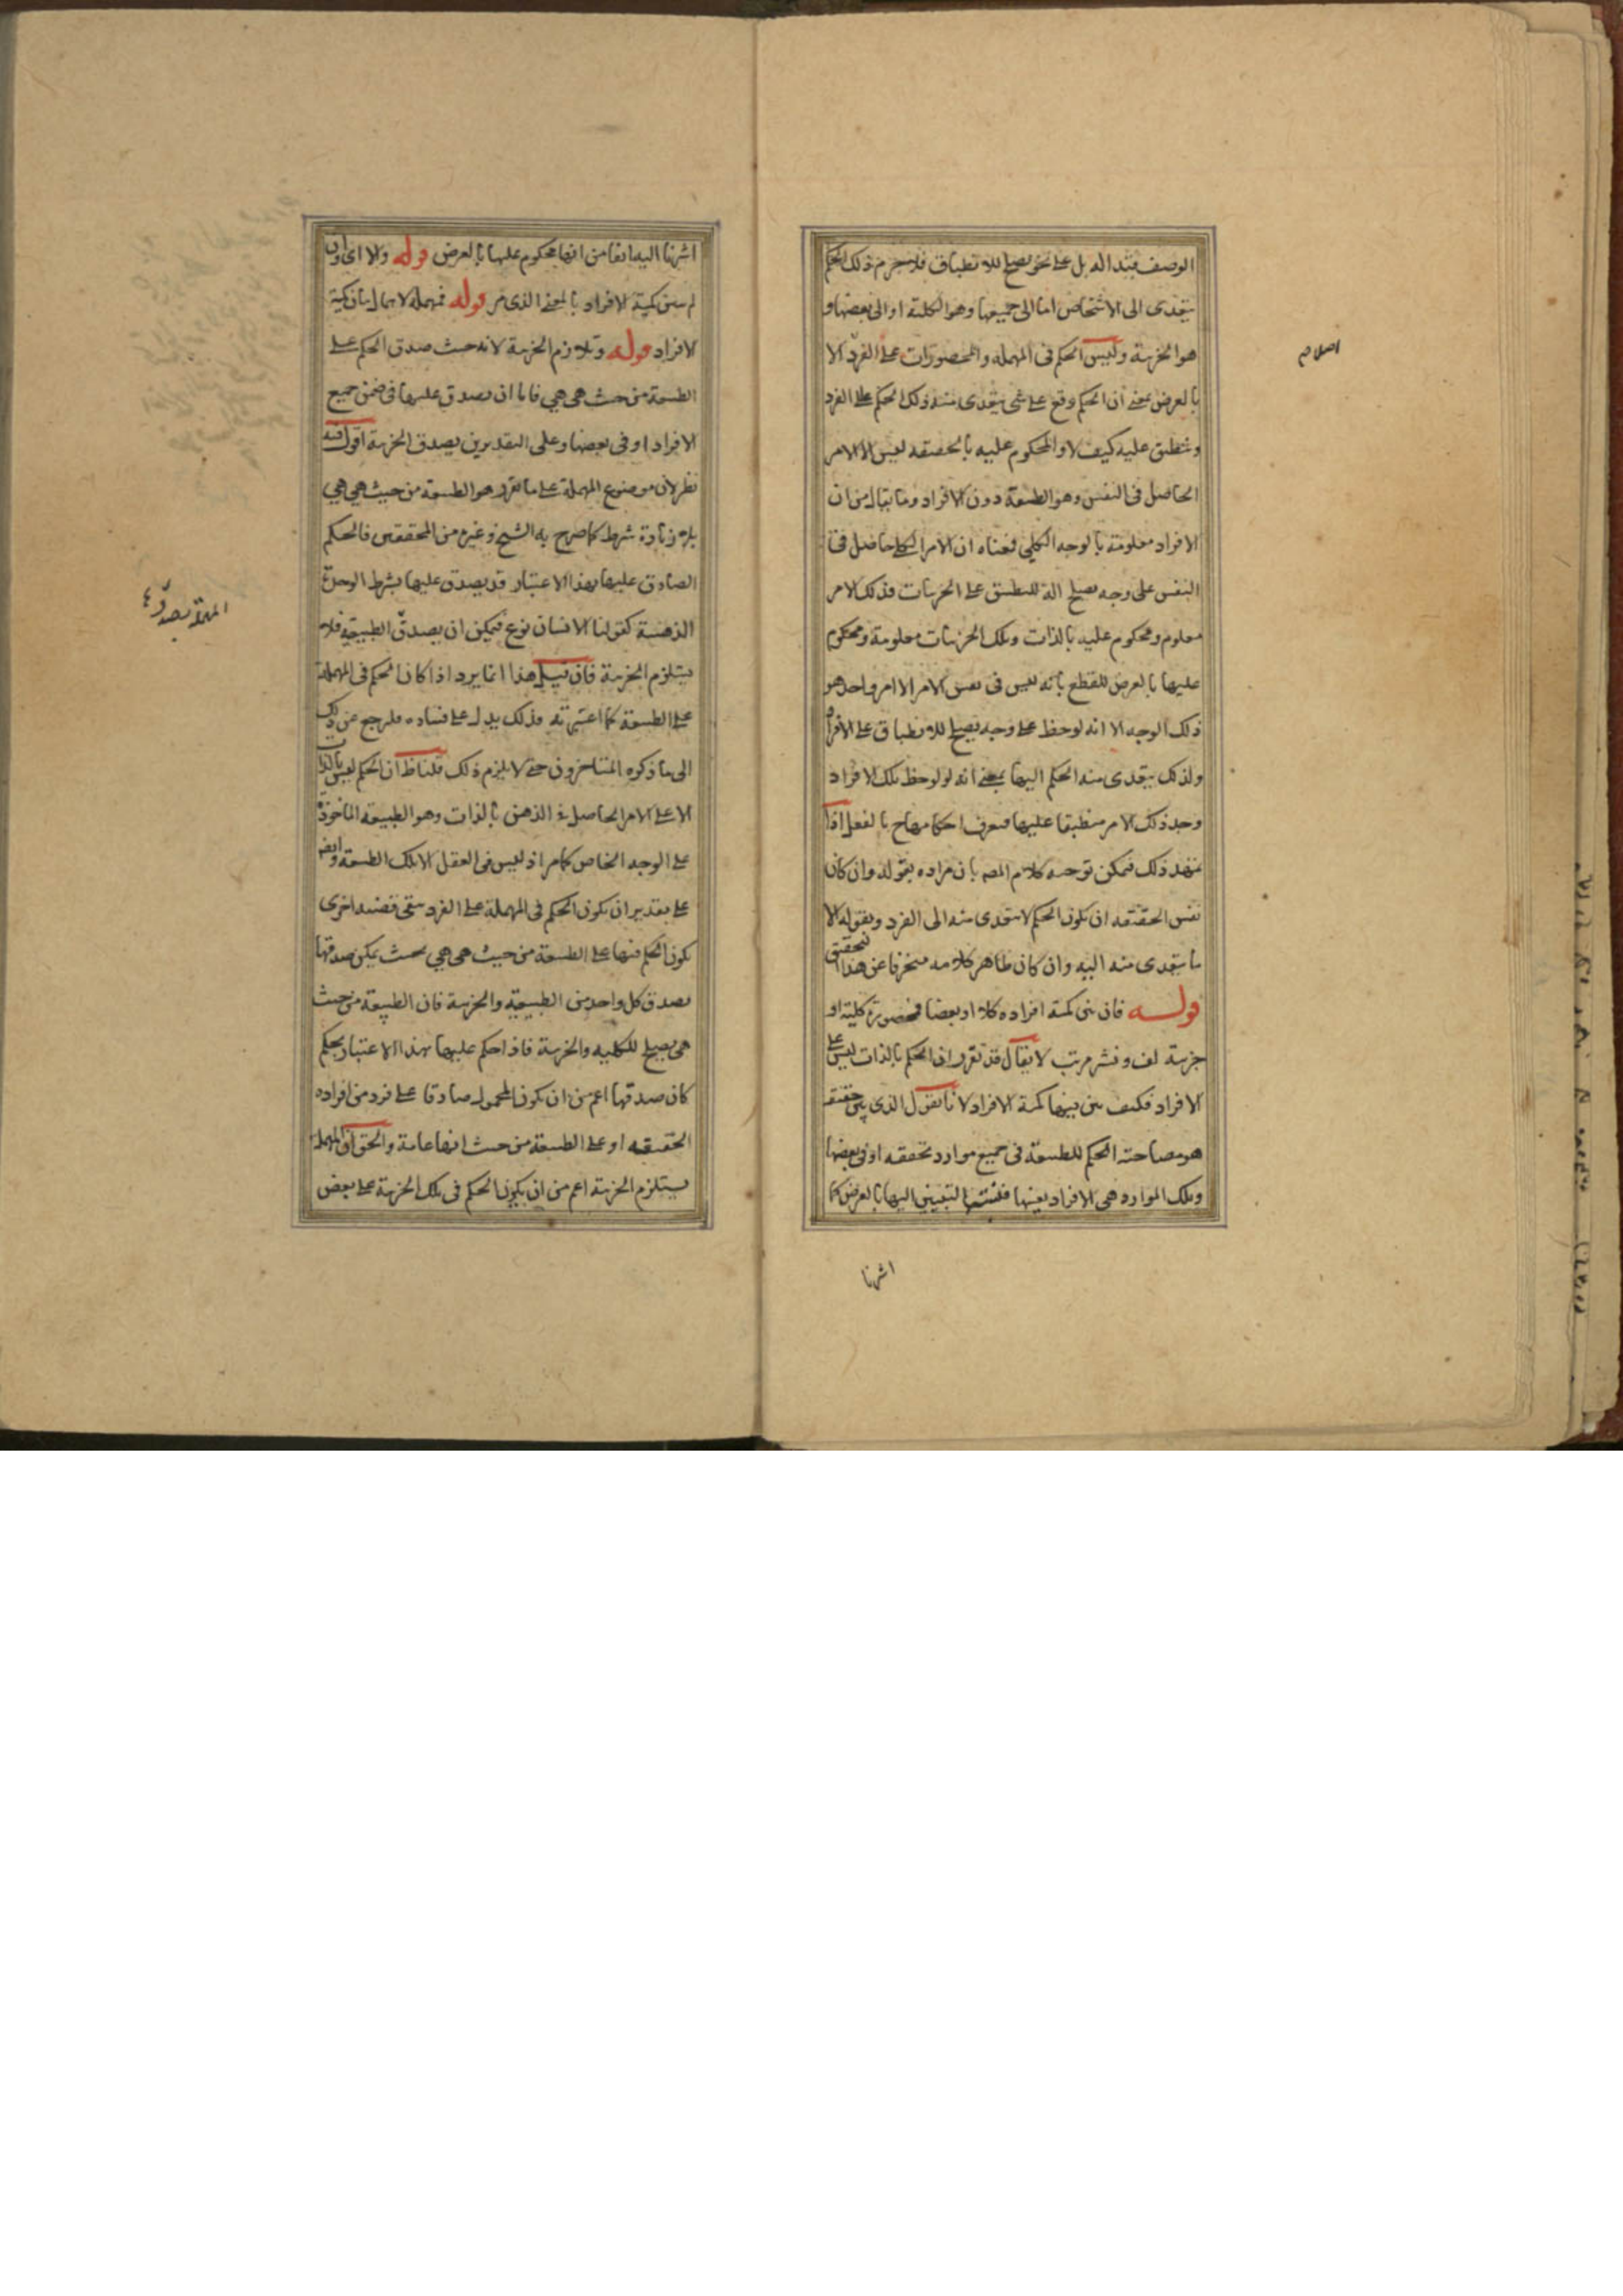 الوصف قيدا له بل على نحو يصلح للانطباق فلا جرم ذلك الحكم
يتعدى الى الاشخاص اما الى جميعها وهو الكلية او الى بعضها و
هو الجزئية وليس الحكم فى المهملة والمحصورات على الفرد الا
بالعرض بمعنى ان الحكم وقع على شئ يتعدى منه ذلك الحكم على الفرد
وينطبق عليه كيف لا والمحكوم عليه بالحقيقة ليس الا الامر
الحاصل فى النفس وهو الطبيعة دون الافراد وما يقال من ان
الافراد معلومة بالوجه الكلي فمعناه ان الامر الكلي حاصل فى
النفس على وجه يصلح آلة للتطبيق على الجزئيات فذلك الامر
معلوم ومحكوم عليه بالذات وتلك الجزئيات معلومة ومحكوم
عليها بالعرض للقطع بانه ليس فى نفس الامر الا امر واحد هو
ذلك الوجه الا انه لوحظ على وجه يصلح للانطباق على الافراد
ولذلك يتعدى منه الحكم اليها بمعنى انه لو لوحظ تلك الافراد
وجد ذلك الامر منطبقا عليها فيعرف احكامها ح بالفعل اذا
تمهد ذلك فيمكن توجيه كلام المصـ بان مراده بقوله وان كان
نفس الحقيقه ان يكون الحكم لا يتعدى منه الى الفرد وبقوله الا
ما يتعدى منه اليه وان كان ظاهر كلامه منحرفا عن هذا التحقيق
قوله فان بين كمية افراده كلا او بعضا فمحصورة كلية او
جزئية لف ونشر مرتب لا يقال قد تقرر ان الحكم بالذات ليس على
الافراد فكيف بين بينها كمية الافراد لانا نقول الذى بين حقيقة
هو مصاحبة الحكم للطبيعة فى جميع موارد تحققه او فى بعضها
وتلك الموارد هى الافراد بعينها فنسبة التبيين اليها بالعرض كما
اشرنا
اصلا م
اشرنا اليه انفا من انها محكوم عليها بالعرض قوله والا اى وان
لم يبين كمية الافراد بالمعنى الذى مر قوله فمهملة لاهمال بيان كمية
الافراد قوله وتلازم الجزئية لانه حيث صدق الحكم على
الطبيعة من حيث هى هي فاما ان يصدق عليها فى ضمن جميع
الافراد او فى بعضها وعلى التقديرين يصدق الجزئية اقول فيه
نظر لان موضوع المهملة على ما تقرر هو الطبيعة من حيث هي هي
بلا زيادة شرط كما صرح به الشيخ وغيره من المحققين فالحكم
الصادق عليها بهذا الاعتبار قد يصدق عليها بشرط الوحدة
الذهنية كقولنا الانسان نوع فيمكن ان يصدق الطبيعية فلا
يستلزم الجزئية فان قيل هذا انما يرد اذا كان الحكم فى المهملة
على الطبيعة كما اعتبرته وذلك يدل على فساده فلرجع عن ذلك
الى ما ذكره المتاخرون حتى لا يلزم ذلك قلنا ظ ان الحكم ليس بالذات
الا على الامر الحاصل فى الذهن بالذات وهو الطبيعة الماخوذة
على الوجه الخاص كما مر اذ ليس فى العقل الا تلك الطبيعة وايضا
على تقدير ان يكون الحكم فى المهملة على الفرد ستبقى قضية اخرى
يكون الحكم فيها على الطبيعة من حيث هى هي بحيث يمكن صدقها
بصدق كل واحد من الطبيعية والجزئية فان الطبيعة من حيث
هى يصلح للكليه والجزئية فاذا حكم عليها بهذا الاعتبار بحكم
كان صدقها اعم من ان يكون المحمول صادقا على فرد من افراده
الحقيقيه او على الطبيعة من حيث انها عامة والحق ان المهملة
يستلزم الجزئية اعم من ان يكون الحكم فى تلك الجزئية على بعض